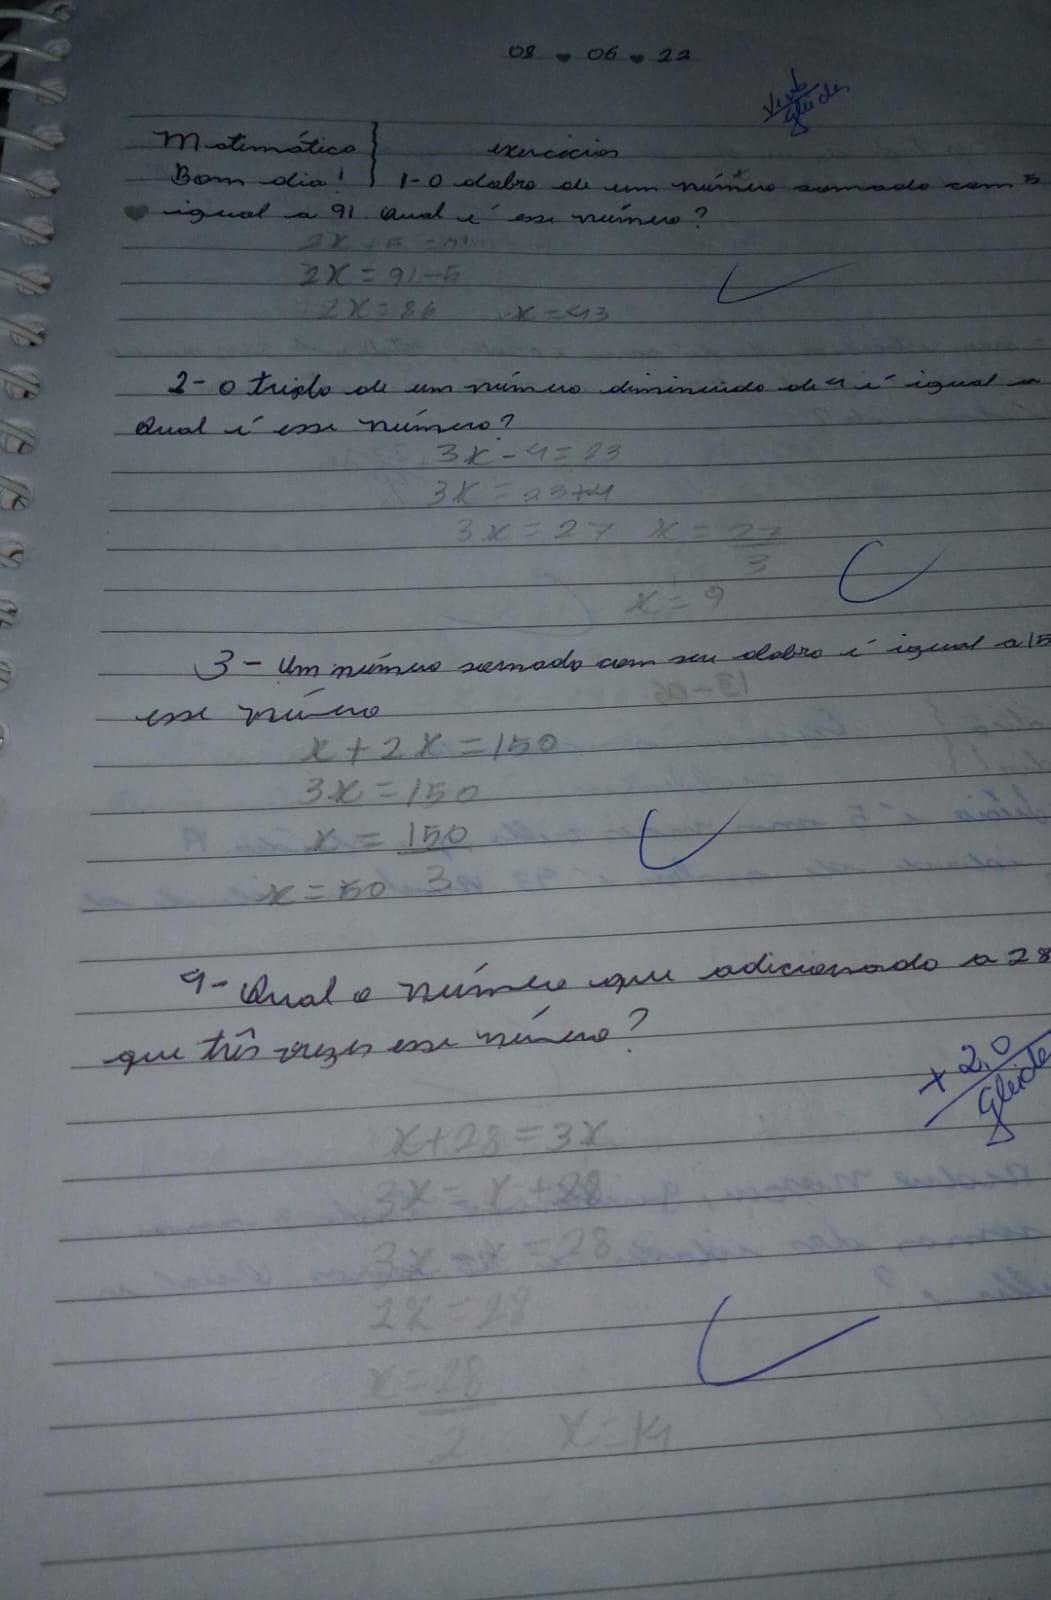 08 ♥ 06 ♥ 22
Visto
Gleide
Matemática } exercícios
Bom dia! } 1-O dobro de um número somado com 5
igual a 91. Qual é esse número?
2x+5=91
2x=91-5
2x=86 x=43
2-O triplo de um número diminuido de 4 é igual a
Qual é esse número?
3x-4=23
3x=23+4
3x=27 x=27
3
x=9
3- Um número somado com seu dobro é igual a 15
esse número
x+2x=150
3x=150
x=150
x=50 3
4-Qual o número que adicionado a 28
que três vezes esse número?
+2,0
Gleide
x+28=3x
3x=x+28
3x-x=28
2x=28
x=28
2 x=14